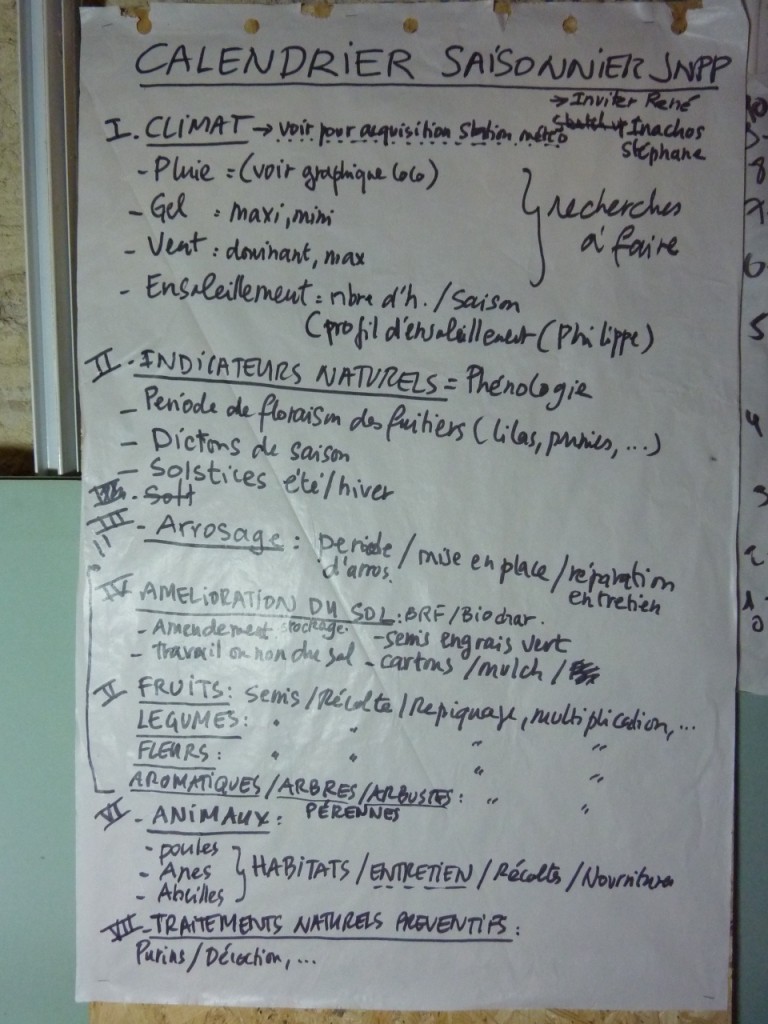 CALENDRIER SAISONNIER JNPP
→ Inviter René
I. CLIMAT → voir pour acquisition station météo Sketch up Inachos
Stéphane
- Pluie = (voir graphique
- Gel : maxi, mini
- Vent : dominant, max
} recherches
à faire
- Ensoleillement = nbre d'h. / saison
(profil d'ensoleillement (Philippe)
II - INDICATEURS NATURELS = Phénologie
- Période de floraison des fruitiers (lilas, pruniers, ...)
- Dictons de saison
- Solstices été/hiver
III - Arrosage : période / mise en place / réparation
d'arros. entretien
IV AMELIORATION DU SOL : BRF / Biochar.
- Amendement stockage. - semis engrais vert
- travail ou non du sol - cartons / mulch /
V FRUITS : Semis / Récolte / Repiquage, multiplication, ...
LEGUMES : " " " "
FLEURS : " " " "
AROMATIQUES / ARBRES / ARBUSTES : " "
PÉRENNES
VI - ANIMAUX :
- poules
- Anes } HABITATS / ENTRETIEN / Récolte / Nourriture
- Abeilles
VII - TRAITEMENTS NATURELS PREVENTIFS :
Purins / Décoction, ...
10
9
8
7
6
5
4
3
2
1
0